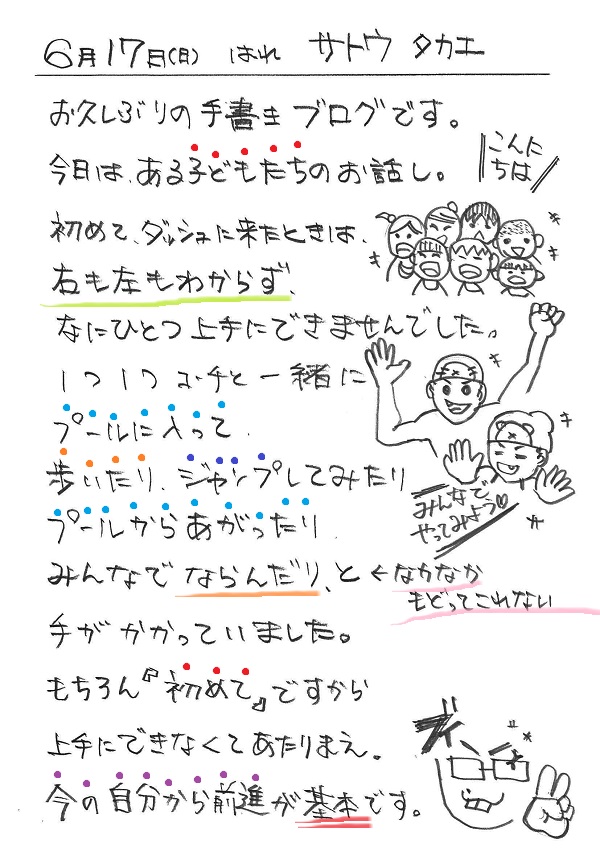 6月17日(日) はれ サトウ タカエ
お久しぶりの手書きブログです。
今日は、ある子どもたちのお話し。
こんに
ちは
初めて、ダッシュに来たときは、
右も左もわからず、
なにひとつ上手にできませんでした。
1つ1つコーチと一緒に
プールに入って、
歩いたり、ジャンプしてみたり
プールからあがったり
みんなで
やってみよう♡
みんなでならんだり、と ←なかなか
もどってこれない
手がかかっていました。
もちろん『初めて』ですから
上手にできなくてあたりまえ。
ブイ
今の自分から前進が基本です。